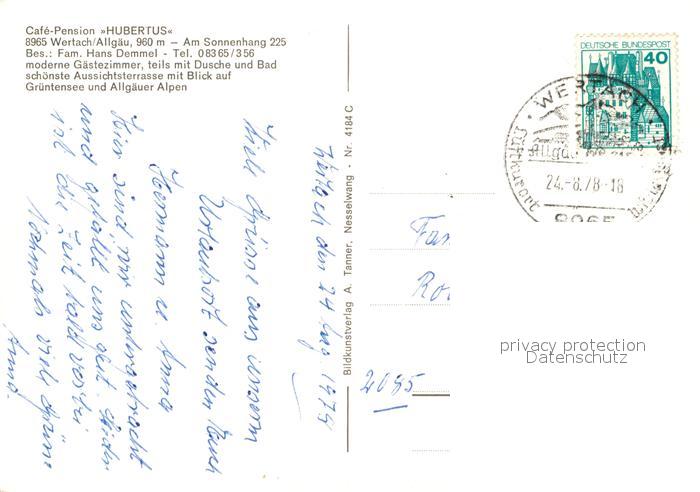 Café-Pension »HUBERTUS«
8965 Wertach/Allgäu, 960 m — Am Sonnenhang 225
Bes.: Fam. Hans Demmel - Tel. 08365/356
moderne Gästezimmer, teils mit Dusche und Bad
schönste Aussichtsterrasse mit Blick auf
Grüntensee und Allgäuer Alpen
den 24 Aug 1978
Viele Grüsse aus unserem
Urlaubsort senden Euch
Hermann u. Anna
Hier sind wir untergebracht
und gefällt uns gut. Leider
ist die Zeit bald vorbei
Nochmals viele Grüsse
Anna.
Bildkunstverlag A. Tanner, Nesselwang - Nr. 4184 C
DEUTSCHE BUNDESPOST
40
WERTACH
Allgäu
Luftkurort
24.-8.78-18
8965
Fam
2085
privacy protection
Datenschutz